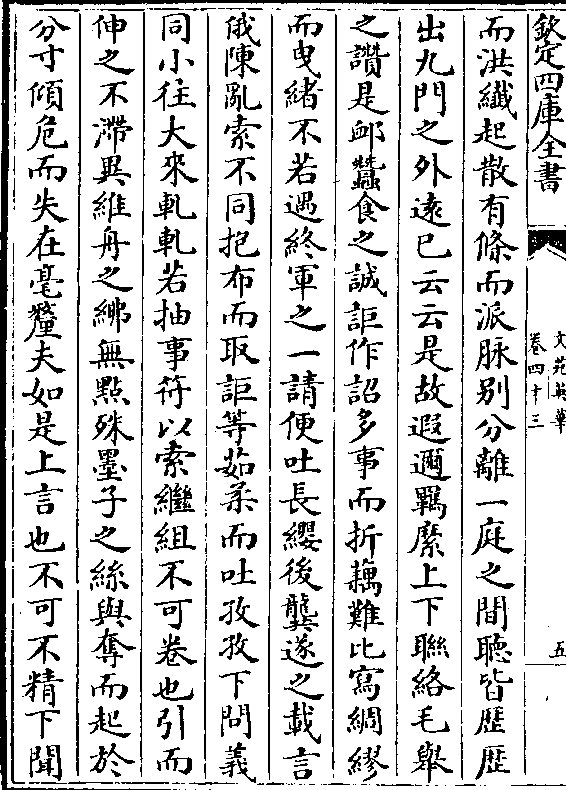 欽定四庫全書
文苑英華
卷四十三
五
而洪纎起散有條而派脉别分離一庭之間聽皆歴歴
出九門之外逺已云云是故遐邇羈縻上下聯絡毛舉
之讚是䘏蠶食之誠詎作詔多事而折藕難比寫綢繆
而曳緒不若遇終軍之一請便吐長纓後龔遂之載言
俄陳亂索不同抱布而取詎等茹柔而吐孜孜下問義
同小往大來軋軋若抽事符以索繼組不可卷也引而
伸之不滯異維舟之紼無點殊墨子之絲與奪而起於
分寸傾危而失在毫釐夫如是上言也不可不精下聞